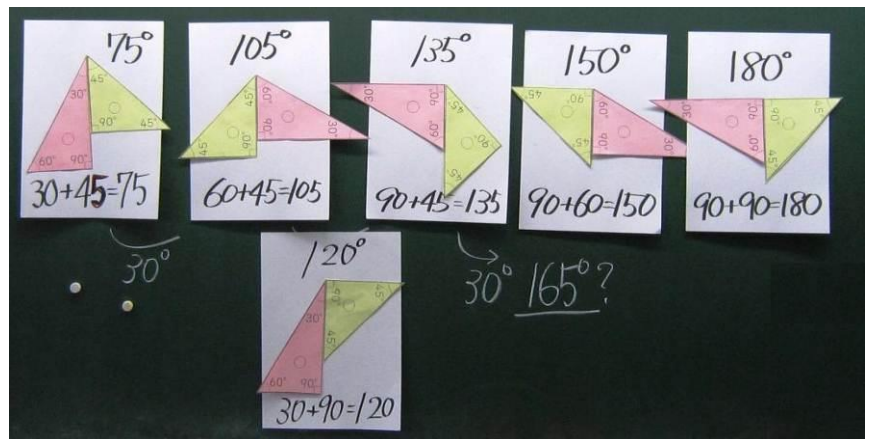 75°
45°
30°
90°
45°
60°
90°
30+45=75
105°
45°
60°
45°
90°
90°
30°
60+45=105
135°
30°
90°
45°
60°
90°
45°
90+45=135
150°
45°
90°
60°
45°
90°
30°
90+60=150
180°
30°
90°
90°
45°
60°
45°
90+90=180
30°
120°
90°
45°
30°
45°
60°
90°
30+90=120
30° 165°?